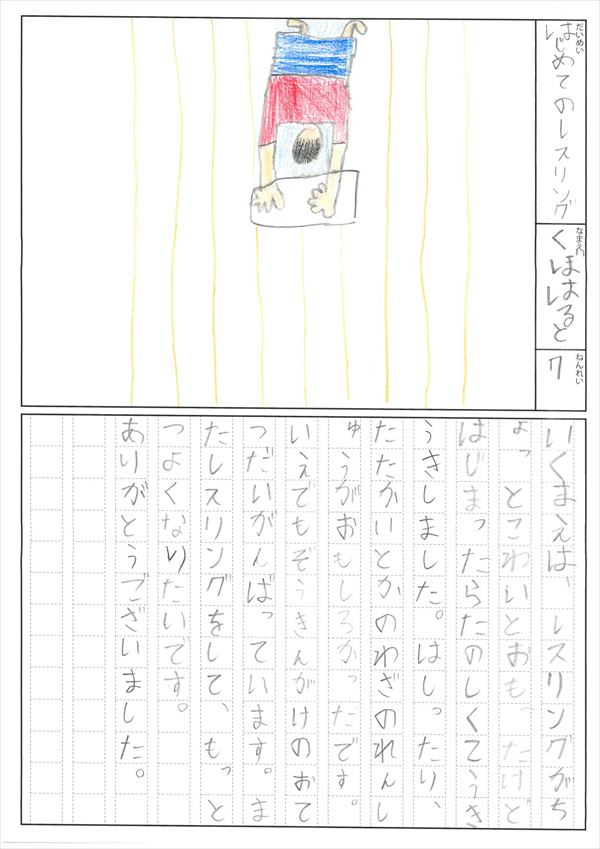 だいめい
はじめてのレスリング
なまえ
くぼはると
ねんれい
7
いくまえは、レスリングがち
ょっとこわいとおもったけど
はじまったらたのしくてうき
うきしました。はしったり、
たたかいとかのわざのれんし
ゅうがおもしろかったです。
いえでもぞうきんがけのおて
つだいがんばっています。ま
たレスリングをして、もっと
つよくなりたいです。
ありがとうございました。